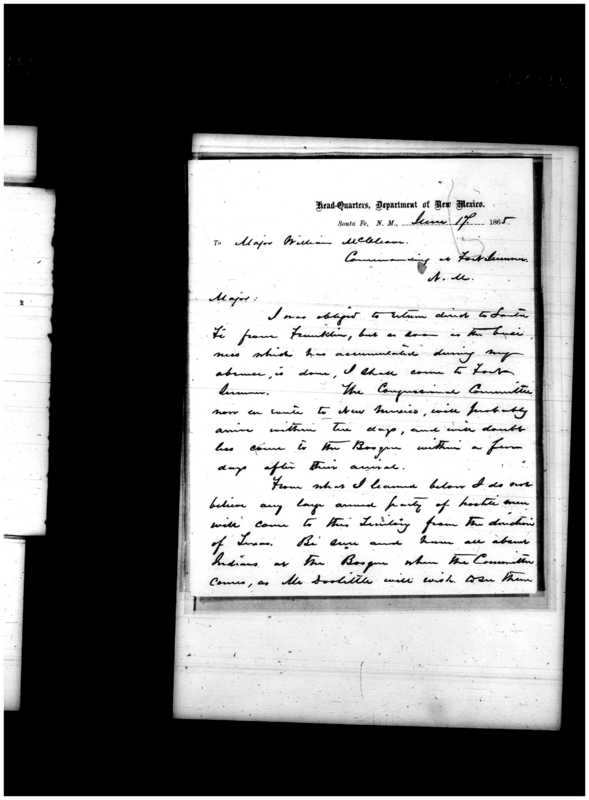 Head-Quarters, Department of New Mexico.
Santa Fe, N. M., June 17, 1865.
To Major William McCleave.
Commanding at Fort Sumner.
N. M.
Major:
I was obliged to return direct to Santa
Fé from Franklin, but as soon as the busi
ness which has accumulated during my
absence, is done, I shall come to Fort
Sumner. The Congressional Committee
now en route to New Mexico, will probably
arrive within ten days, and will doubt
less come to the Bosque within a few
days after their arrival.
From what I learned below I do not
believe any large armed party of hostile men
will come to this Territory from the direction
of Texas. Be sure and have all absent
Indians at the Bosque when the Committee
comes, as Mr Doolittle will wish to see them